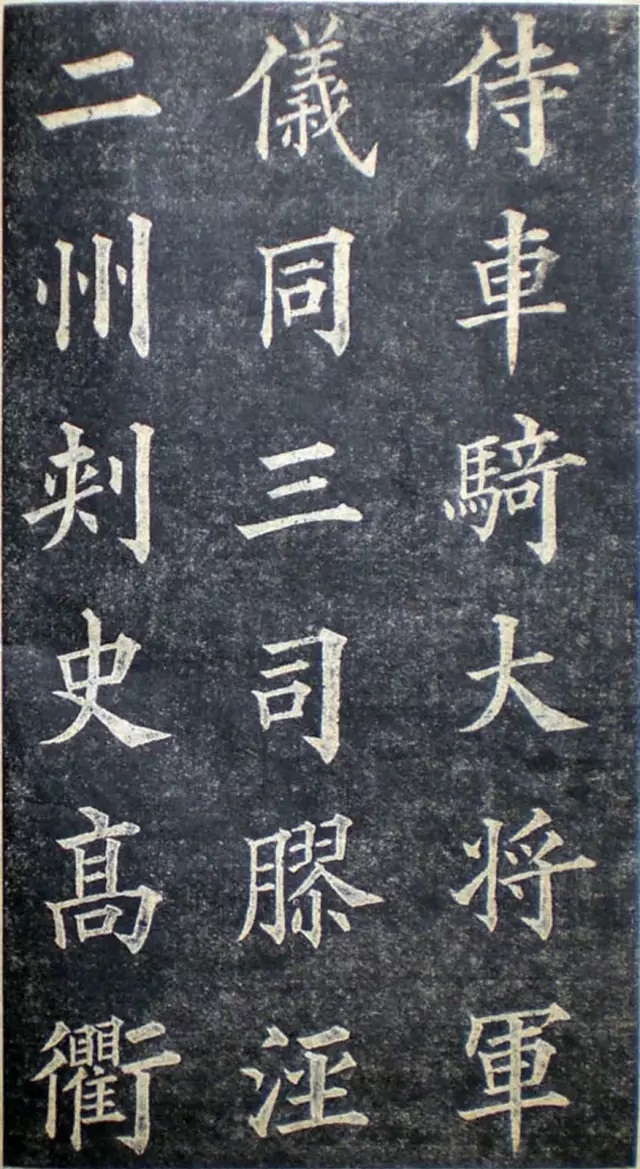 侍車騎大将軍
儀同三司膠涇
二州刺史髙衢